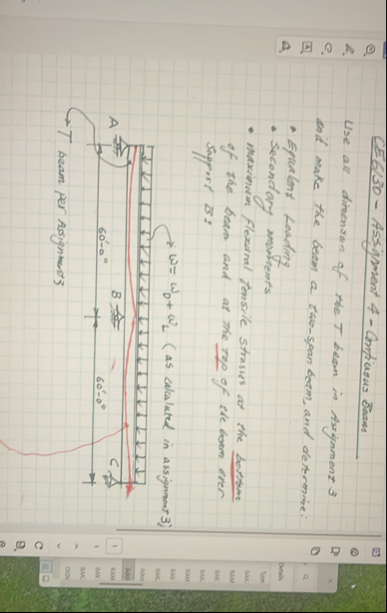 CE6130 - Assignment 4 - Continuous Beam
Use all dimension of the T beam in Assignment 3
and make the beam a two-span beam, and determine:
• Equivalent Loading
• Secondary moments
• Maximum flexural tensile stresses at the bottom
of the beam and at the top of the beam over
Support B:
w = wD + wL (as calculated in assignment 3)
A B C
60'-0" 60'-0"
T beam per Assignment 3
Details